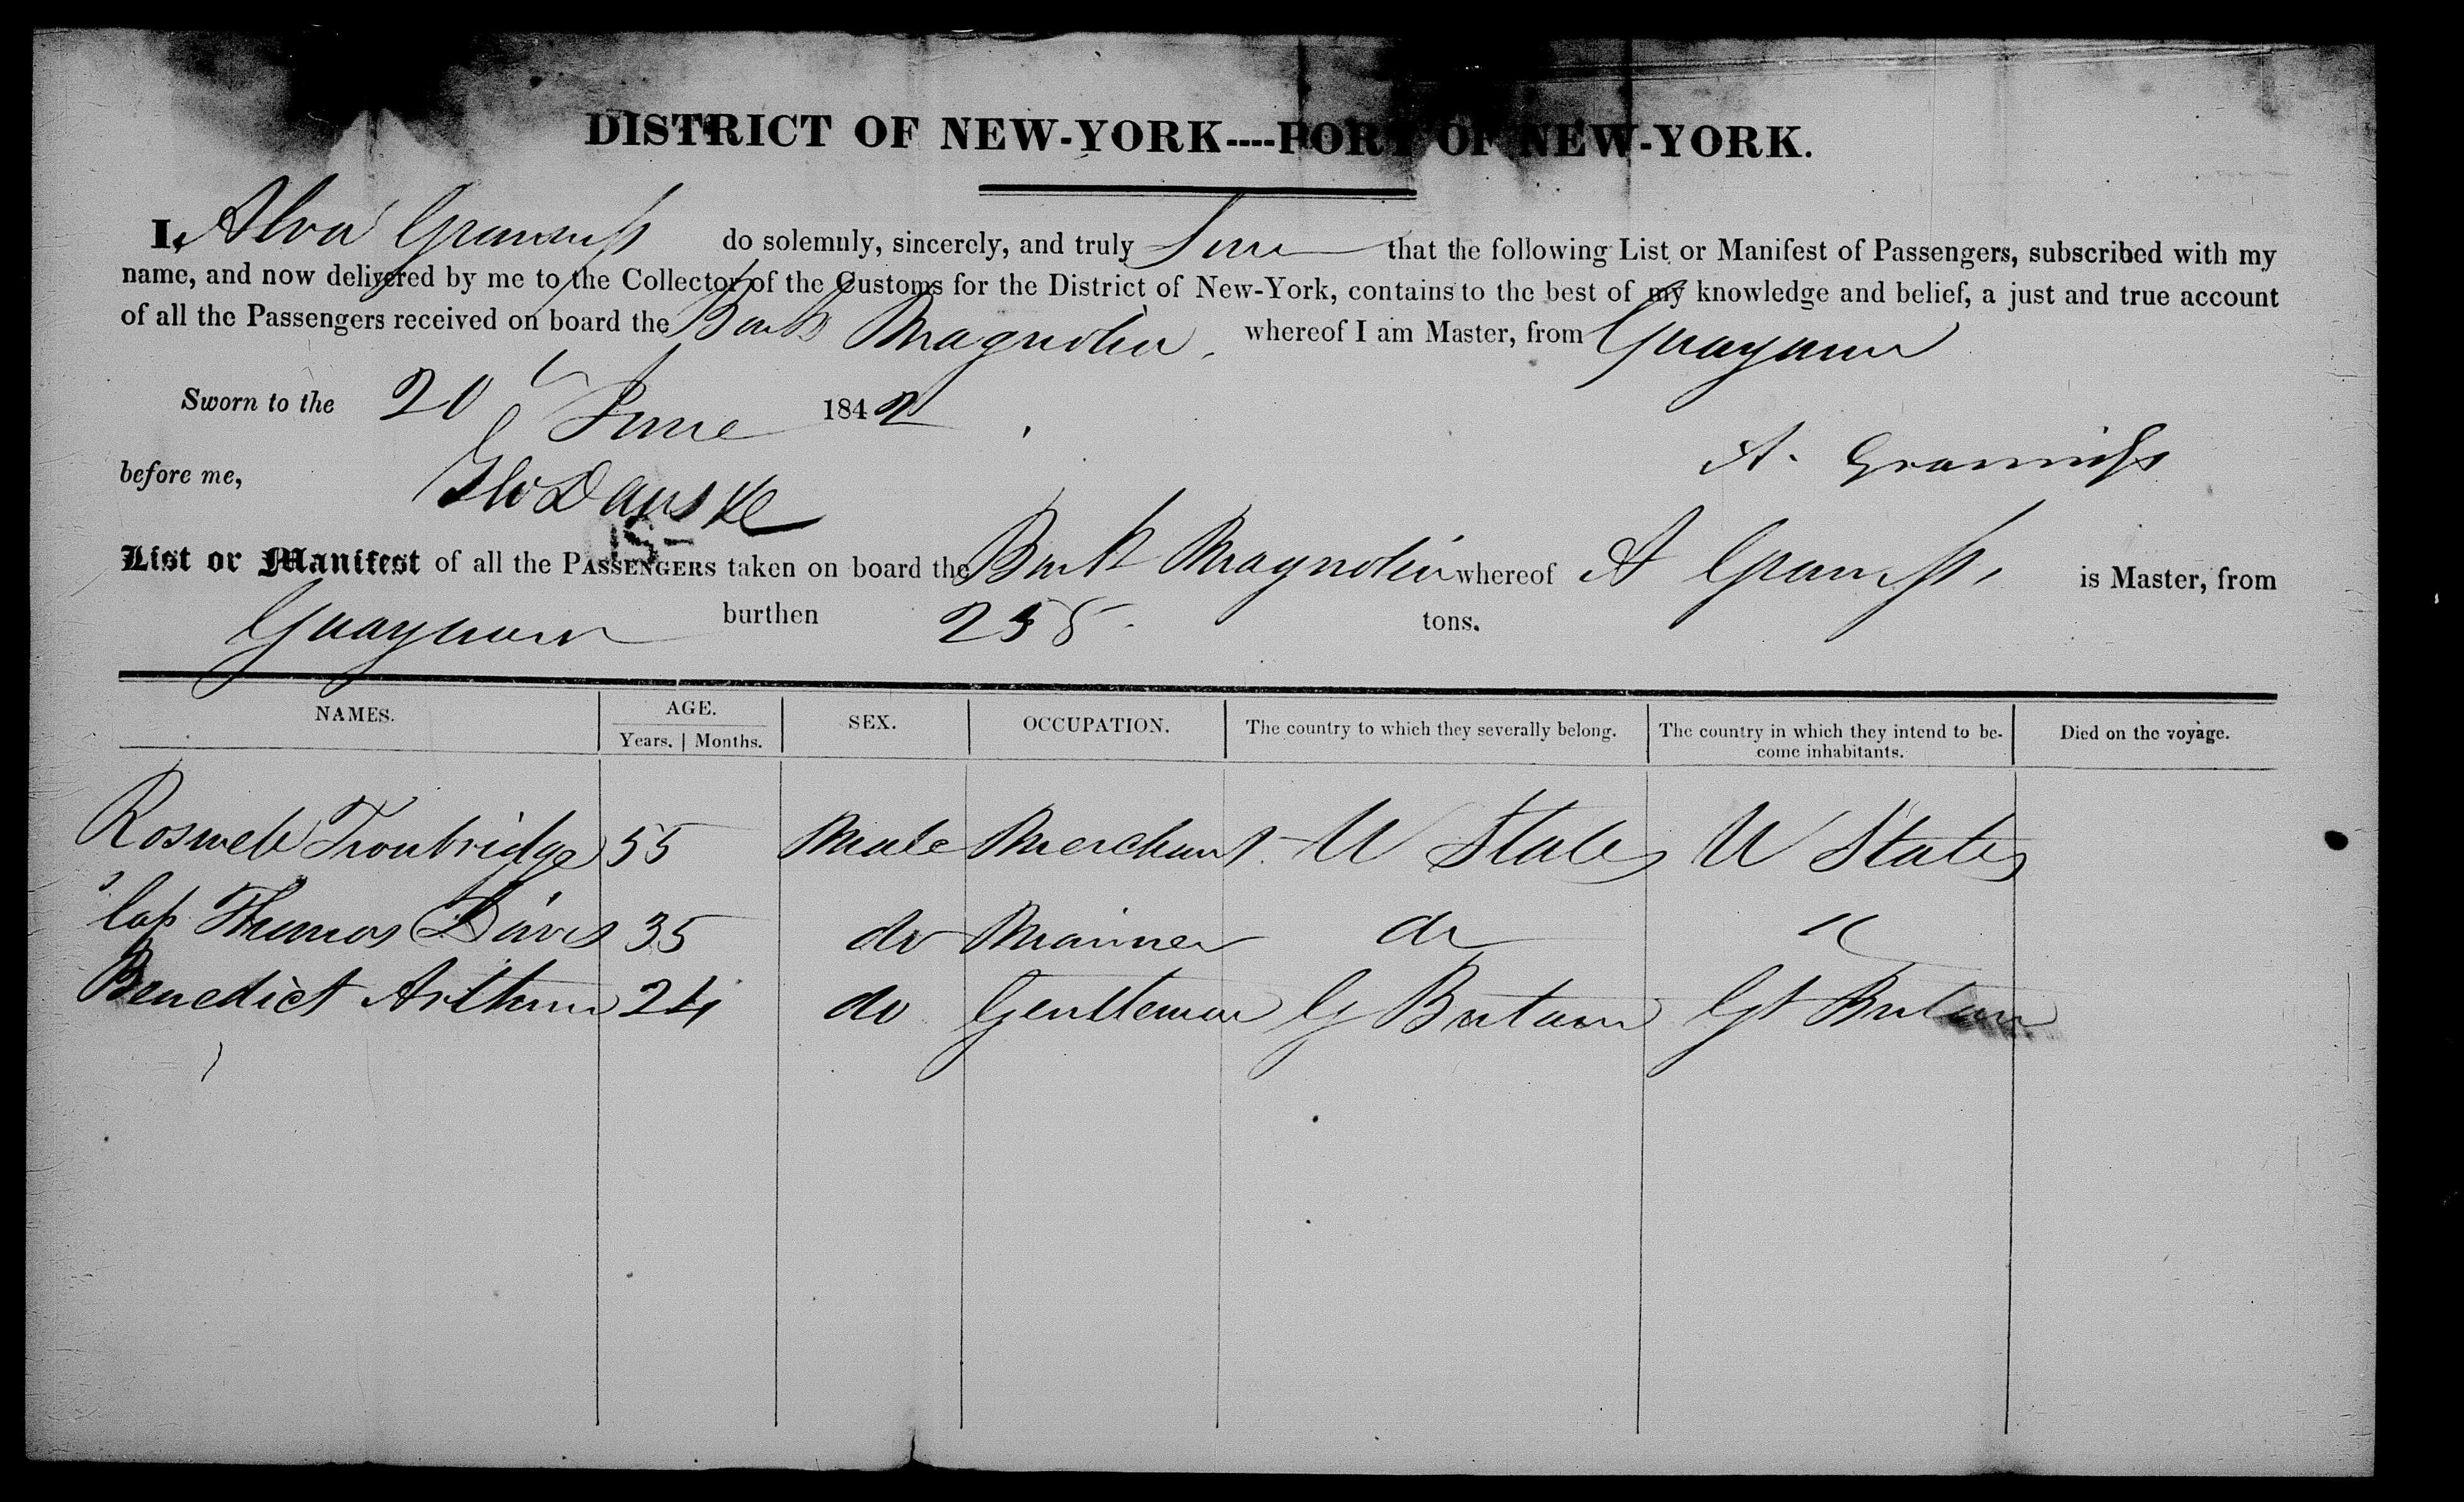 DISTRICT OF NEW-YORK----PORT OF NEW-YORK.
I, Alva Granniss do solemnly, sincerely, and truly that the following List or Manifest of Passengers, subscribed with my
name, and now delivered by me to the Collector of the Customs for the District of New-York, contains to the best of my knowledge and belief, a just and true account
of all the Passengers received on board the Bark Magnolia, whereof I am Master, from Guayama
Sworn to the 20 June 1842
A. Granniss
before me,
List or Manifest of all the PASSENGERS taken on board the Bark Magnolia whereof A Granniss, is Master, from
Guayama burthen 258 tons.
NAMES. AGE. SEX. OCCUPATION. The country to which they severally belong. The country in which they intend to be- Died on the voyage.
Years. | Months. come inhabitants.
Roswell Troubridge 55 Male Merchant U States U States
Cap Thomas Davis 35 do Mariner do "
Benedict Arthur 24 do Gentleman G Britain Gt Britain